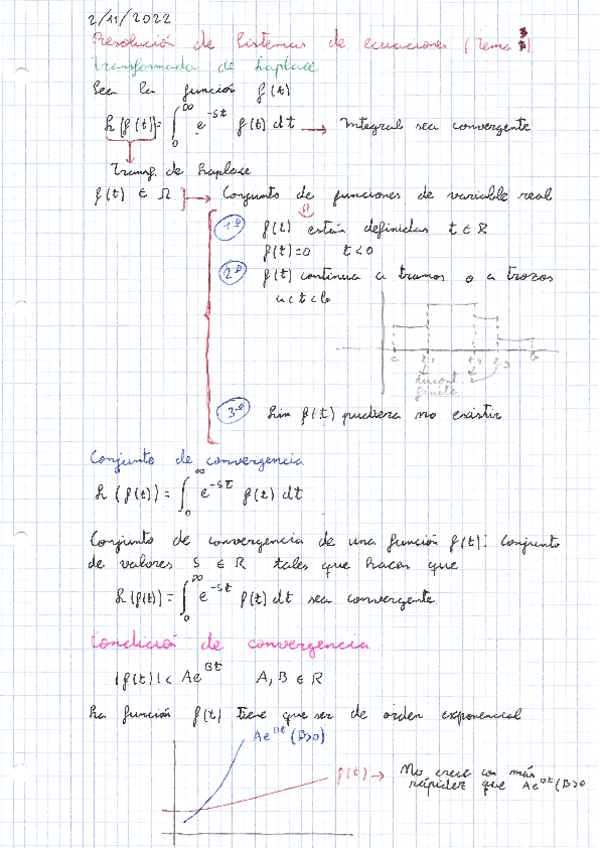 2/11/2022
Resolución de sistemas de ecuaciones (Tema 3)
Transformada de Laplace
Sea la función f(t)
L(f(t)) = ∫₀^∞ e^-st f(t) dt → Integral sea convergente
Transf. de Laplace
f(t) ∈ Ω → Conjunto de funciones de variable real
1º f(t) están definidas t ∈ R
f(t)=0 t<0
2º f(t) continua a tramos o a trozos
a<t<b
a b
discont.
finite
3º Lim f(t) pudiera no existir
Conjunto de convergencia
L(f(t)) = ∫₀^∞ e^-st f(t) dt
Conjunto de convergencia de una función f(t): Conjunto
de valores S ∈ R tales que hacen que
L(f(t)) = ∫₀^∞ e^-st f(t) dt sea convergente
Condición de convergencia
|f(t)| < Ae^Bt A, B ∈ R
La función f(t) tiene que ser de orden exponencial
Ae^Bt (B>0)
f(t) → No crece con más
rápidez que Ae^Bt (B>0